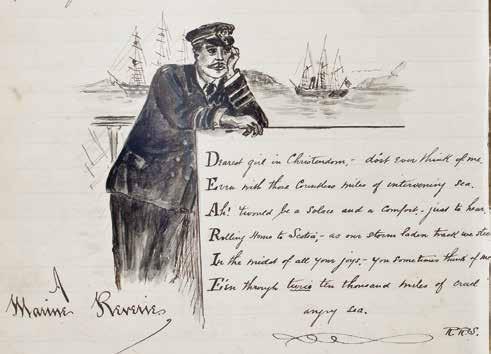 Dearest girl in Christendom, - dost ever think of me
Even with those Countless miles of intervening sea.
Ah! 'twould be a solace and a comfort, - just to hear,
Rolling Home to Scotia, - as our storm laden track we steer
In the midst of all your joys, - you sometimes think of me
E'en through twice ten thousand miles of cruel
angry sea.
A
Marine Reverie,
R.R.S.